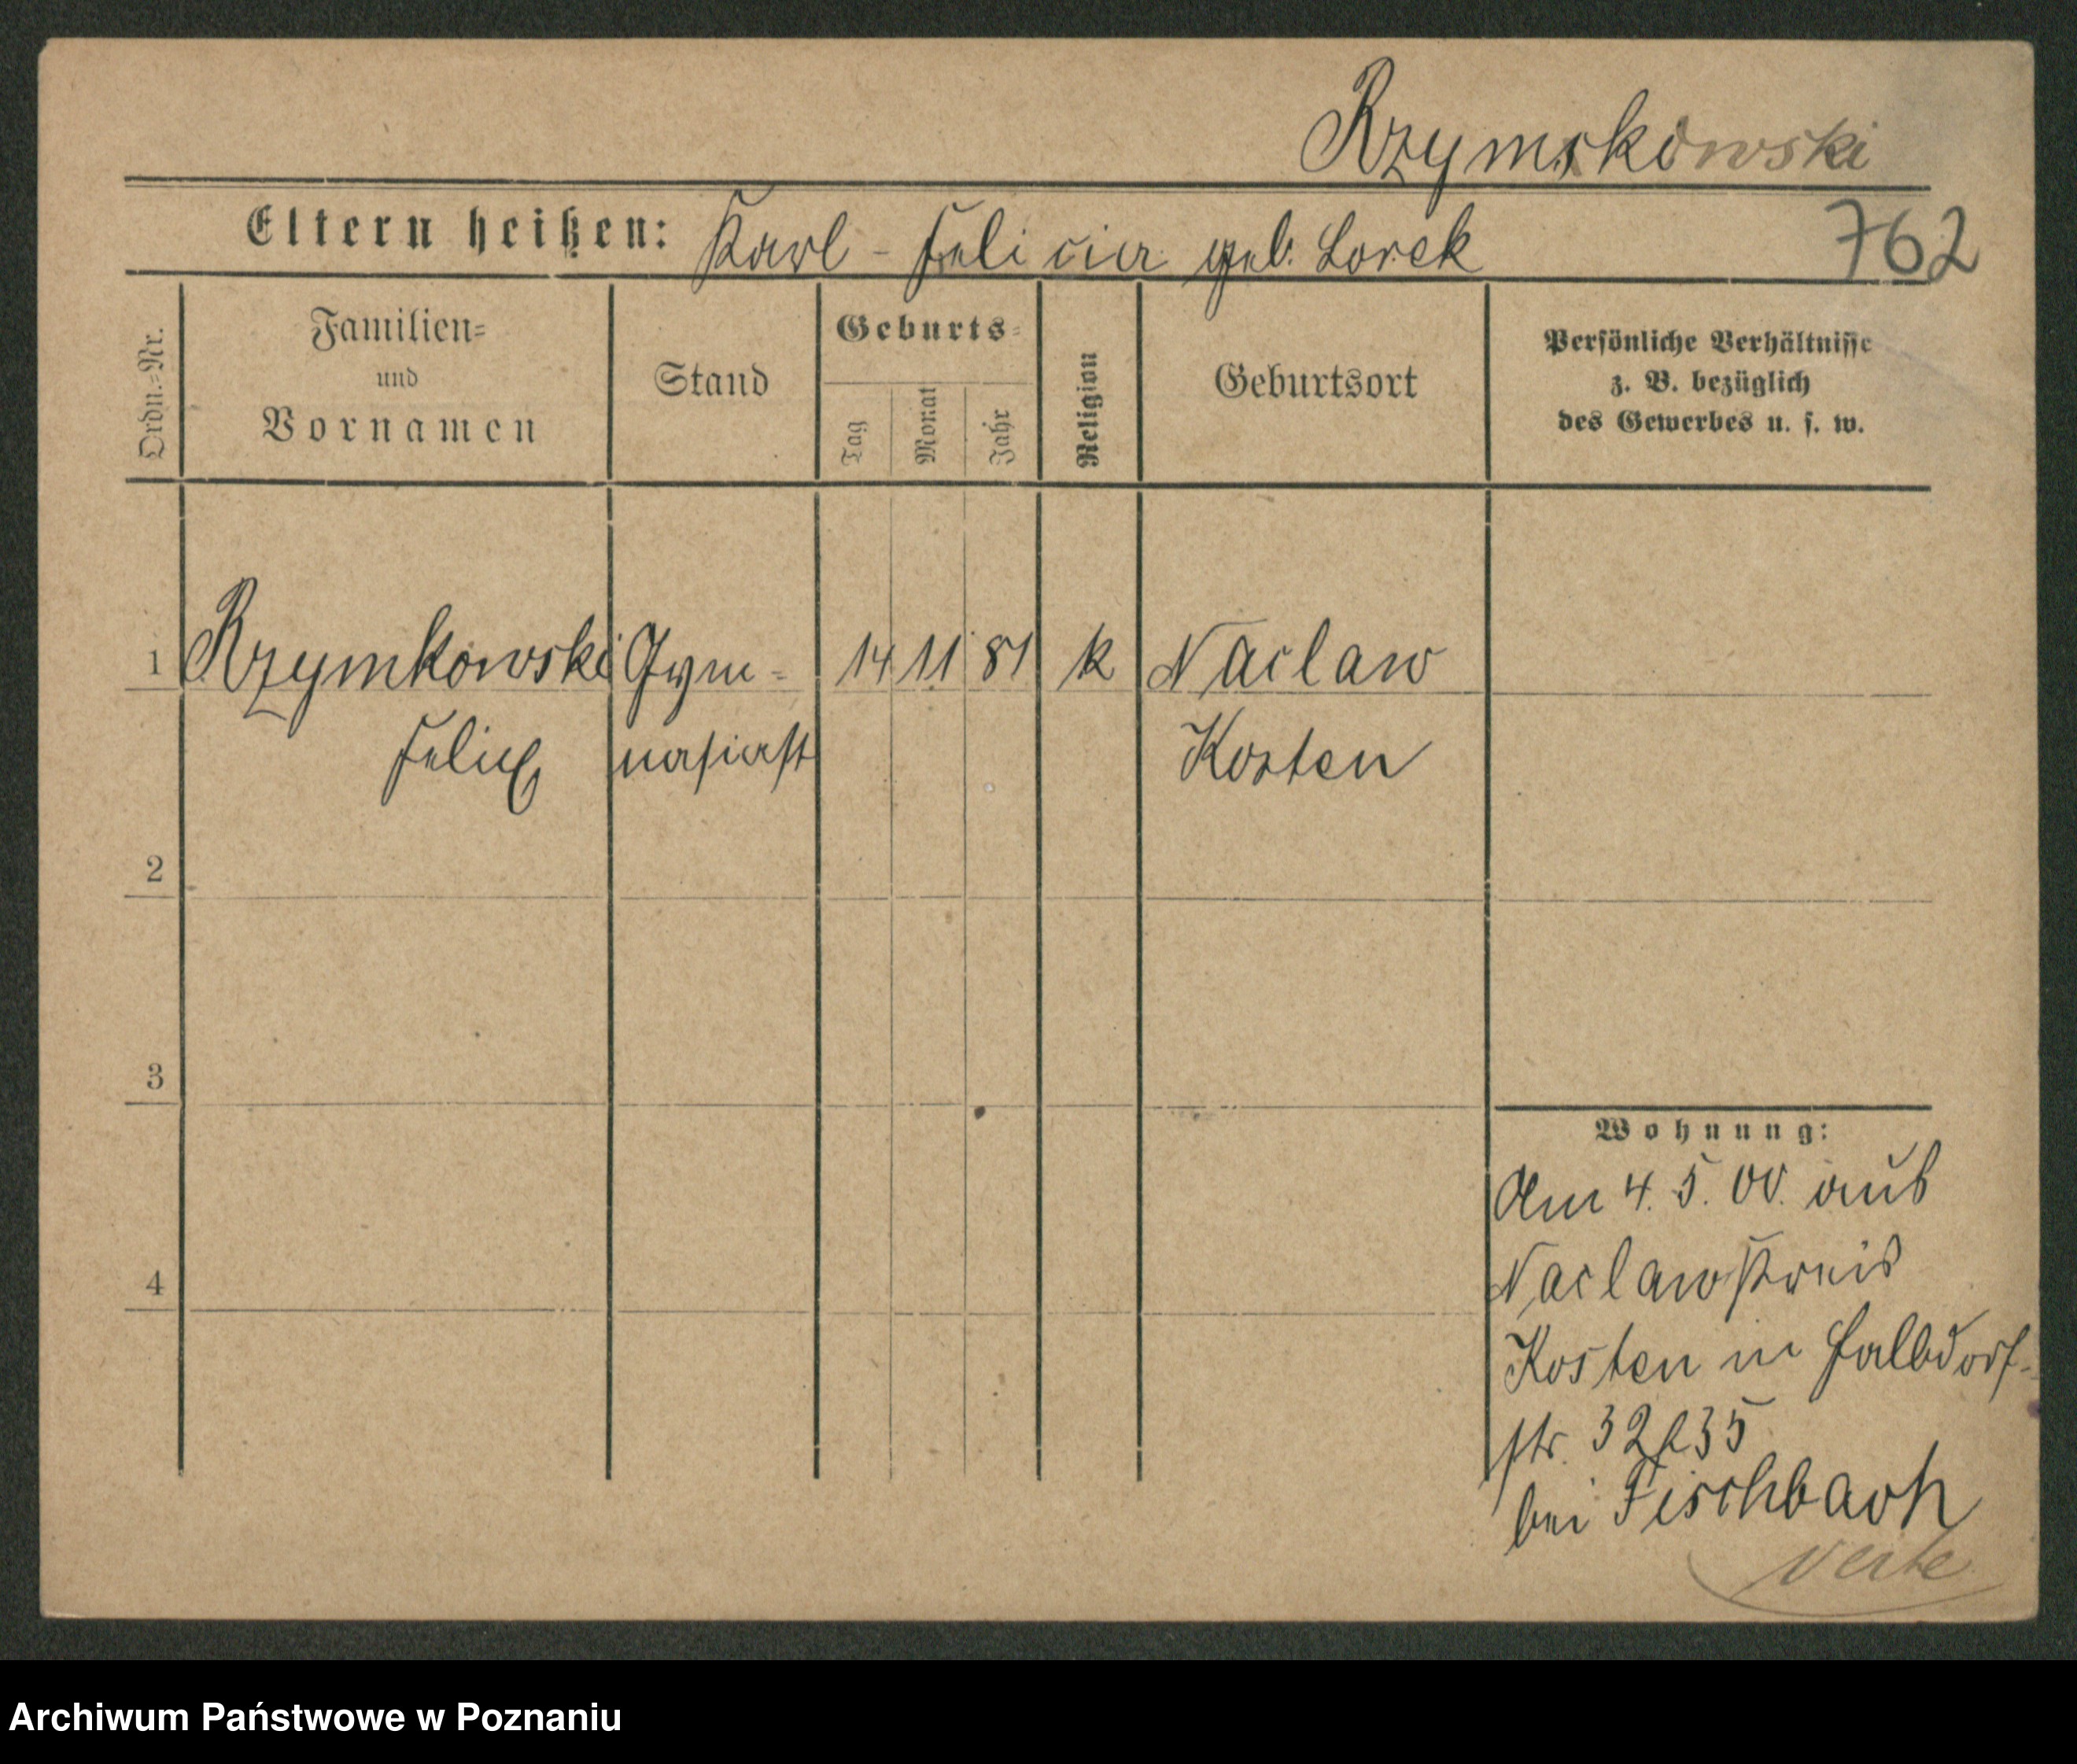 Rzymskowski
Eltern heißen: Karl - Felicia geb. Lorek
762
Ordn.=Nr.
Familien=
und
Vornamen
Stand
Geburts=
Tag
Monat
Jahr
Religion
Geburtsort
Persönliche Verhältnisse
z. B. bezüglich
des Gewerbes u. s. w.
1 Rzymkowski Gym= 14 11 81 k Naclaw
Felix nasiast Kosten
2
3
4
Wohnung:
Am 4. 5. 00. aus
Naclaw Kreis
Kosten in
str. 32/35
bei Fischbach
verte
Archiwum Państwowe w Poznaniu